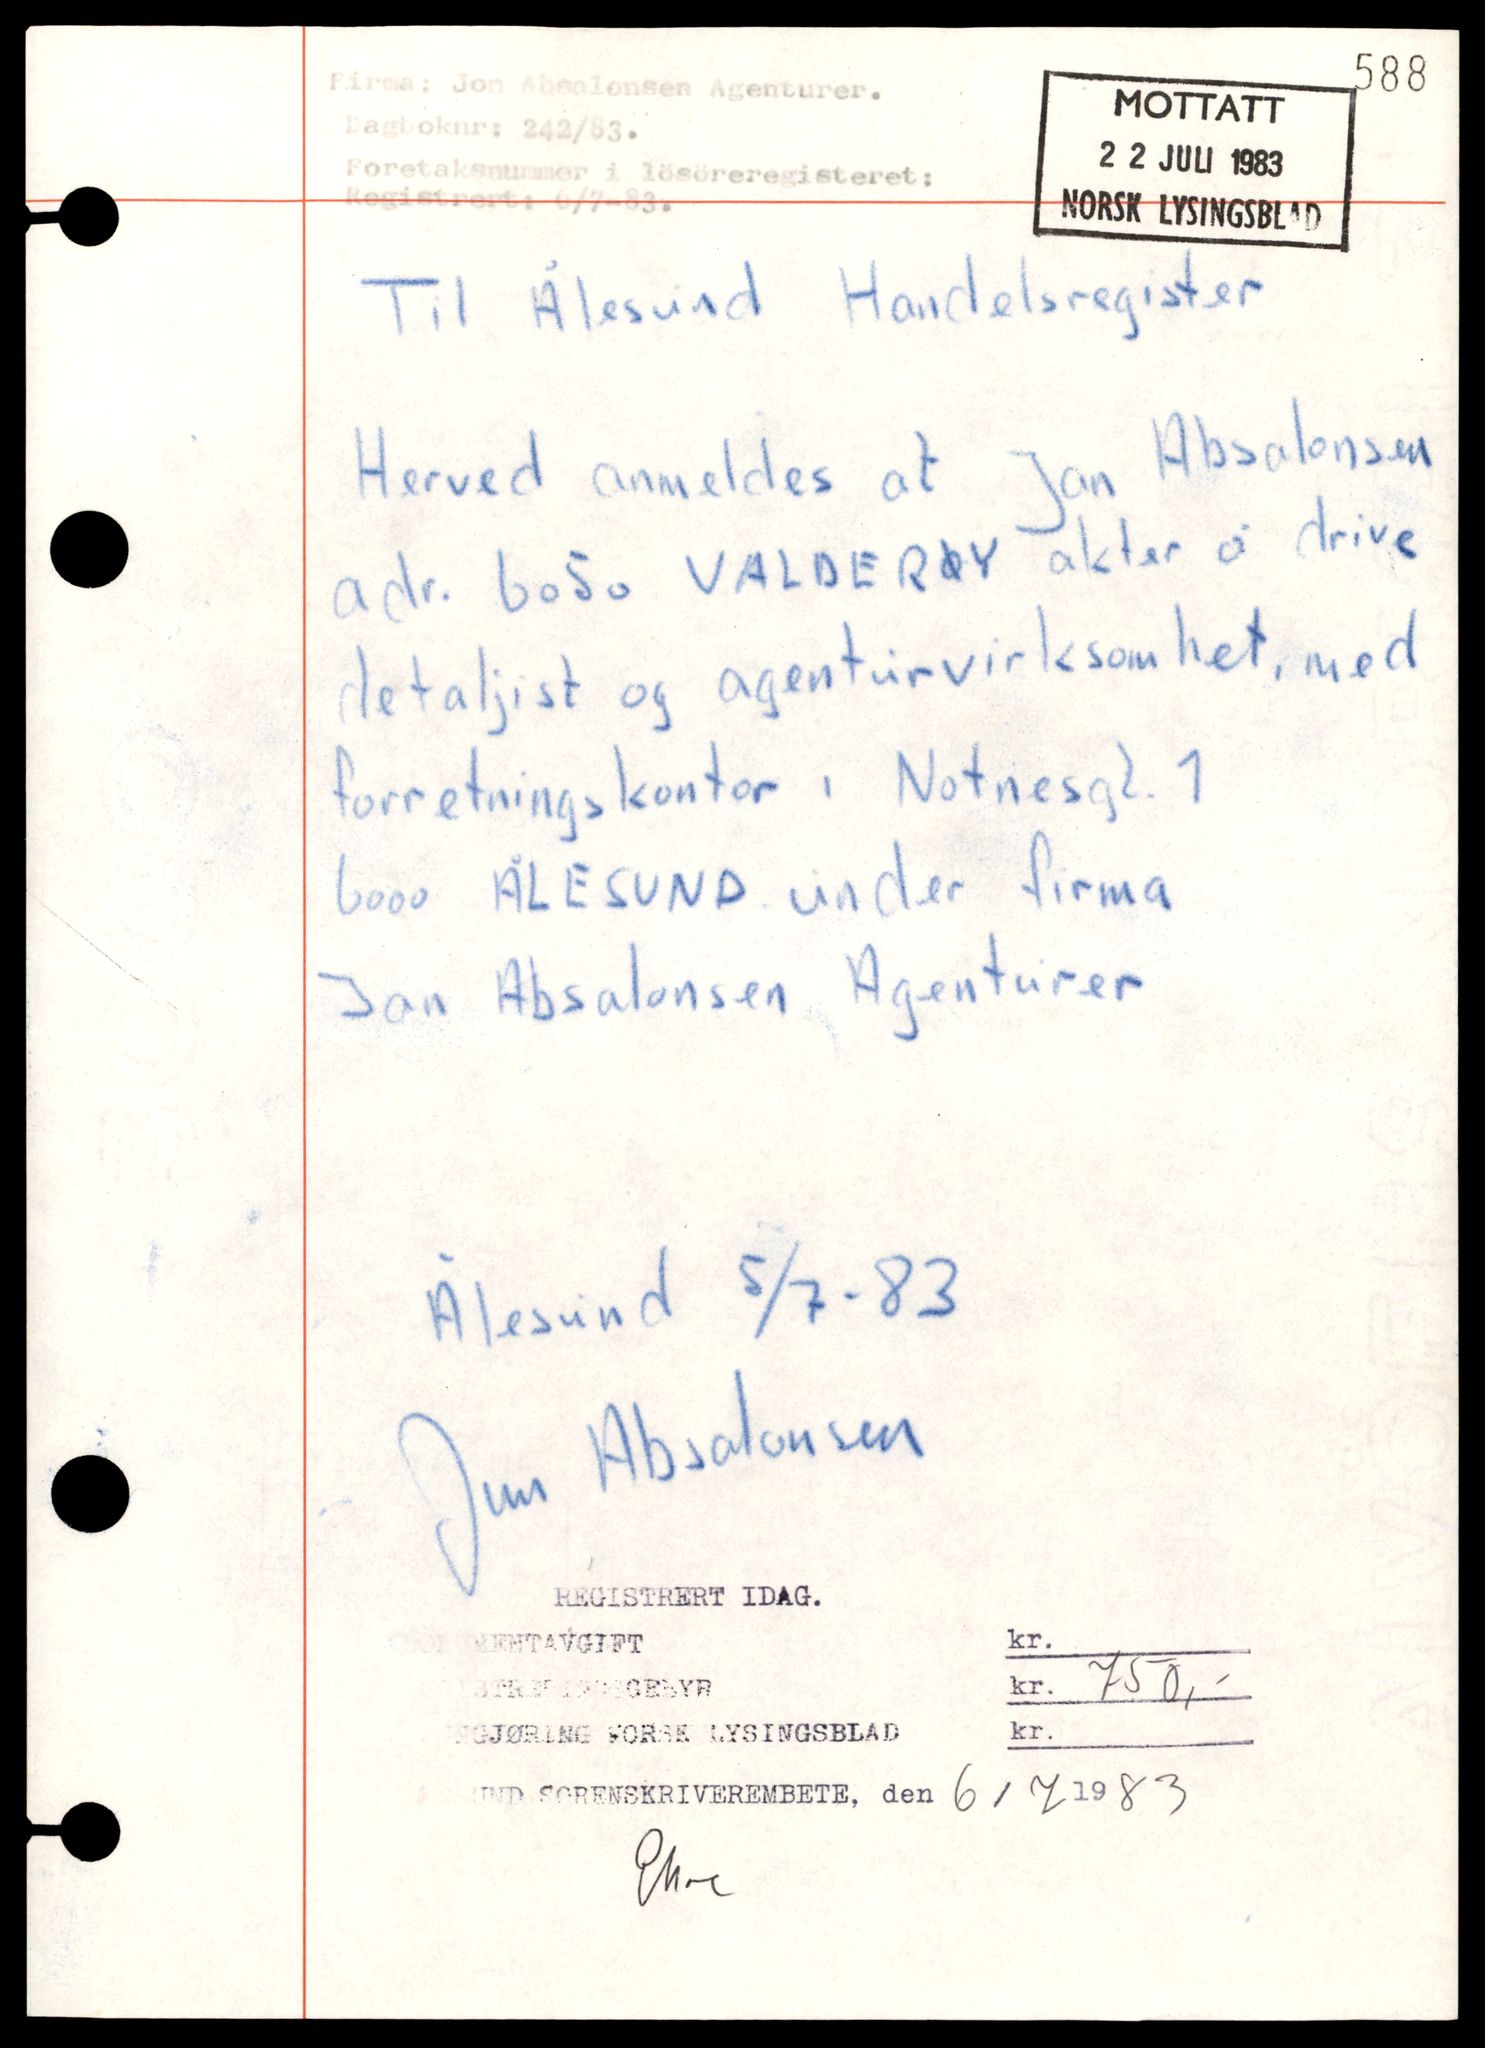 588
Firma: Jon Absalonsen Agenturer.
Dagboknr: 242/83.
Foretaksnummer i lösöreregisteret:
Registrert: 6/7-83.
MOTTATT
22 JULI 1983
NORSK LYSINGSBLAD
Til Ålesund Handelsregister
Herved anmeldes at Jan Absalonsen
adr. 6050 VALDERØY akter å drive
detaljist og agenturvirksomhet, med
forretningskontor i Notnesgt. 1
6000 ÅLESUND under firma
Jan Absalonsen Agenturer
Ålesund 5/7-83
Jan Absalonsen
REGISTRERT IDAG.
MENTAVGIFT kr.
GEBYR kr. 750,-
NGJØRING NORSK LYSINGSBLAD kr.
UND SORENSKRIVEREMBETE, den 6/7 1983